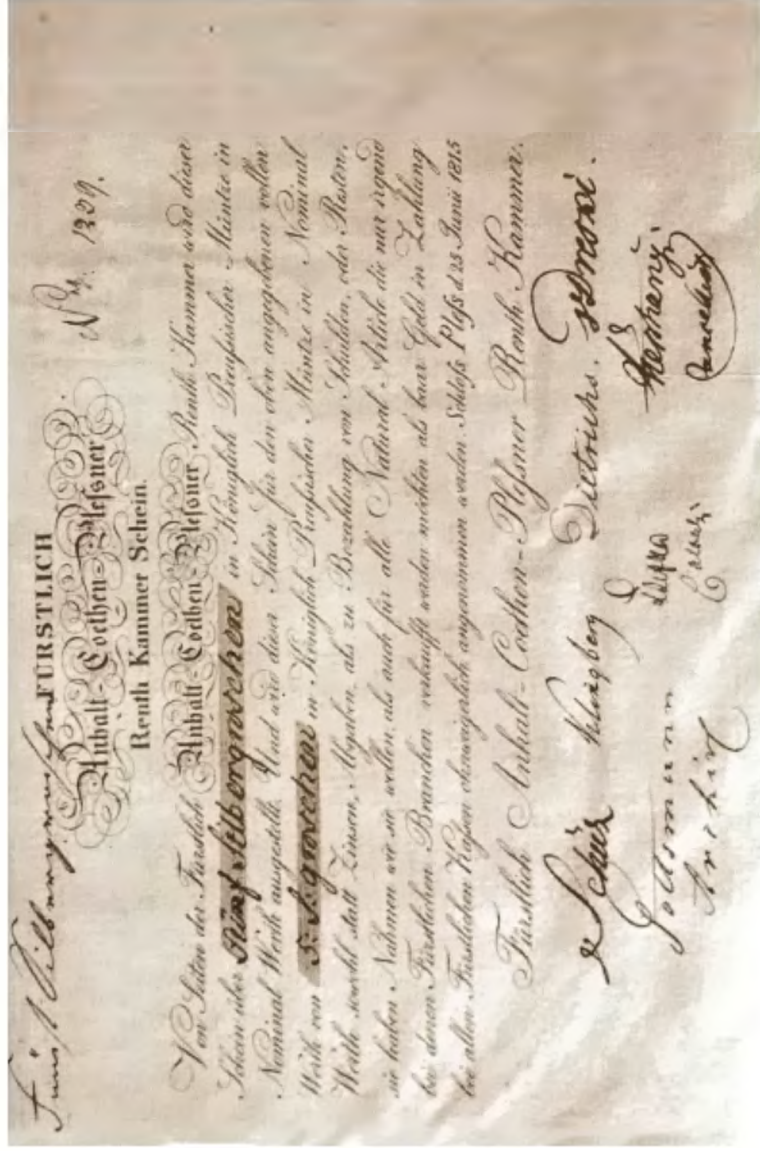 Fünf Silbergroschen
No. 1309.
FÜRSTLICH
Anhalt-Coethen-Plessner
Renth Kammer Schein.
Von Seiten der Fürstlich Anhalt-Coethen-Plessner Renth Kammer wird dieser
Schein über Fünf Silbergroschen in Königlich Preußischer Müntze in
Nominal Werth ausgestellt. Und wird dieser Schein für den oben angegebenen vollen
Werth von 5: S.groschen in Königlich Preußischer Müntze in Nominal
Werth sowohl statt Zinsen, Abgaben, als zu Bezahlung von Schulden, oder Resten,
sie haben Nahmen wie sie wollen, als auch für alle Natural Article die nur irgend
bei denen Fürstlichen Branchen verkaufft werden möchten als baar Geld in Zahlung
bei allen Fürstlichen Kassen ohnweigerlich angenommen werden. Schloß Pleß d 25 Junii 1815
Fürstlich Anhalt-Coethen-Pleßner Renth Kammer.
Schütz Klingberg Dietrichs.